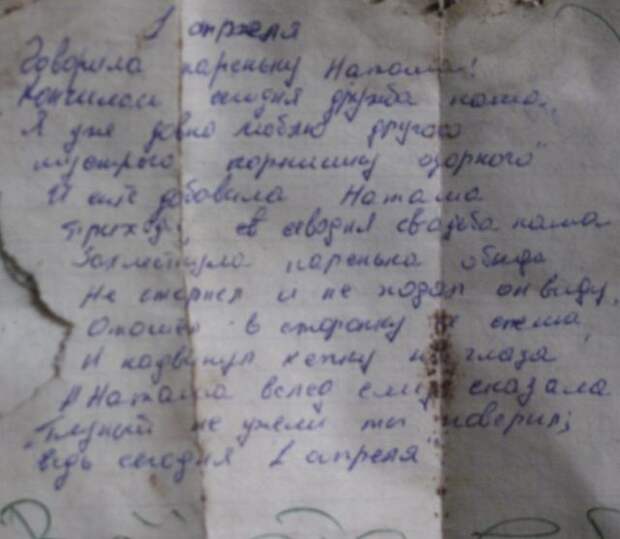 1 апреля
Говорила пареньку Наташа!
Кончилась сегодня дружба наша,
Я уже давно люблю другого
шустрого парнишку озорного
И ещё добавила Наташа
Приходи, сегодня свадьба наша
Захлестнула паренька обида
Не стерпел и не подал он виду,
Отошел в сторонку не спеша,
И надвинул кепку на глаза
А Наташа вслед ему сказала
Глупый не ужели ты поверил;
ведь сегодня 1 апреля